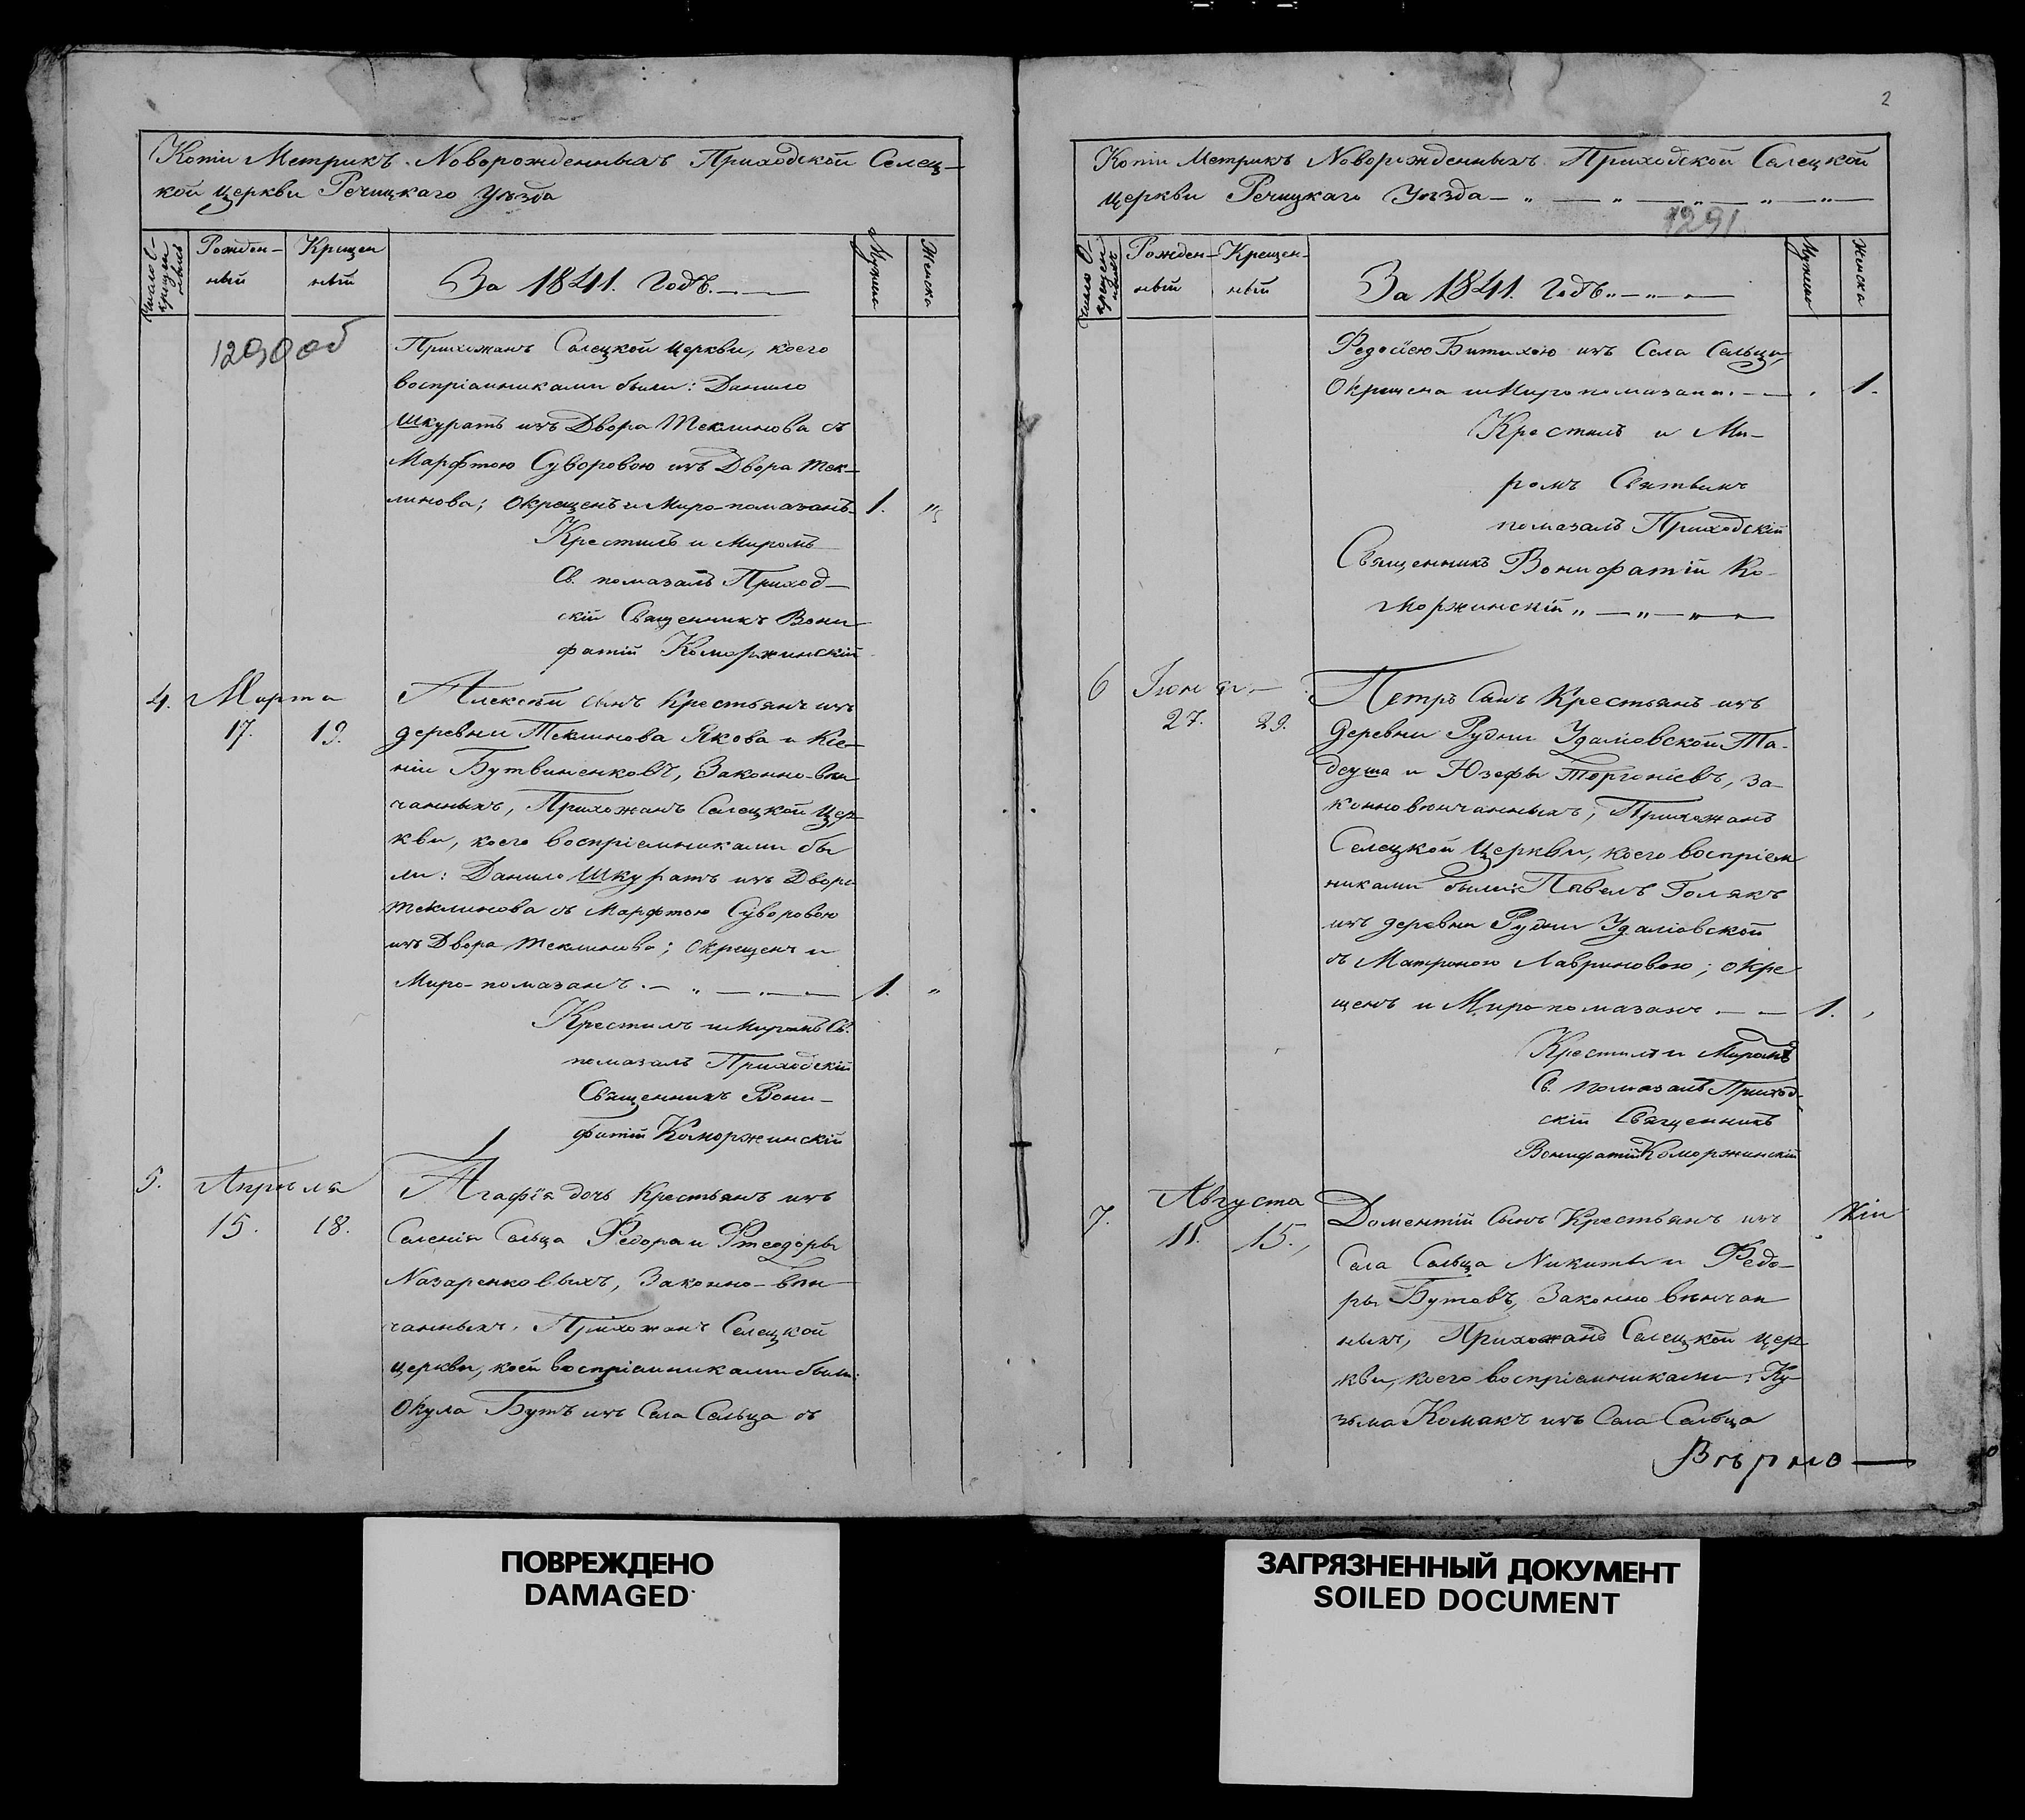 Копіи Метрикъ Новорожденныхъ Приходской Селец-
кой церкви Речицкаго Уѣзда
Число О-
крещен
ныхъ
Рожден-
ный
Крещен
ный
За 1841. Годъ.
Мужска
Женска
1290 об
Прихожанъ Селецкой церкви, коего
воспріемниками были: Данило
Шкуратъ изъ Двора Теклинова съ
Марфтою Суворовою изъ Двора Тек-
линова; Окрещенъ и Миро-помазанъ 1. "
Крестилъ и Миромъ
Св. помазалъ Приход-
скій Священникъ Вони
фатій Коморжинскій
4. Марта
17. 19.
Алексѣй сынъ Крестьянъ изъ
деревни Теклинова Якова и Ксе-
ніи Бутвиненковъ, Законно-вѣн
чанныхъ, Прихожанъ Селецкой Цер-
кви, коего воспріемниками бы
ли: Данило Шкуратъ изъ Двора
Теклинова съ Марфтою Суворовою
изъ Двора Теклинова; Окрещенъ и
Миро-помазанъ. 1. "
Крестилъ и Миромъ Св.
помазалъ Приходскій
Священникъ Вони-
фатій Коморжинскій
5. Апрѣля
15. 18.
Агафія дочь Крестьянъ изъ
Селенія Сельца Федора и Фтеодоры
Назаренковыхъ, Законно-вѣн
чанныхъ, Прихожанъ Селецкой
церкви, коей воспріемниками были:
Окула Бутъ изъ Села Сельца съ
2
Копіи Метрикъ Новорожденныхъ Приходской Селецкой
церкви Речицкаго Уѣзда
1291
Число О-
крещен
ныхъ
Рожден-
ный
Крещен-
ный
За 1841. Годъ
Мужско
Женска
Федосіею Битихою изъ Села Сельца,
Окрещена и Миропомазана. 1.
Крестилъ и Ми-
ромъ Святымъ
помазалъ Приходскій
Священникъ Вонифатій Ко-
моржинскій
6 Іюня
27. 29.
Петръ Сынъ Крестьянъ изъ
Деревни Рудни Удалёвской Та-
деуша и Юзефы Торгоніевъ, За-
конновѣнчанныхъ, Прихожанъ
Селецкой Церкви, коего воспріем
никами были: Павелъ Голякъ
изъ деревни Рудни Удалёвской
съ Матроною Лавриновою; окре
щенъ и Миропомазанъ 1.
Крестилъ и Миромъ
Св. помазалъ Приход-
скій Священникъ
Вонифатій Коморжинскій
7. Августа
11. 15.
Доментій Сынъ Крестьянъ изъ
Села Сельца Никиты и Федо-
ры Бутовъ, Законно вѣнчан
ныхъ, Прихожанъ Селецкой цер
кви, коего воспріемниками: Ку
зьма Комакъ изъ Села Сельца
Вѣрно
ПОВРЕЖДЕНО
DAMAGED
ЗАГРЯЗНЕННЫЙ ДОКУМЕНТ
SOILED DOCUMENT